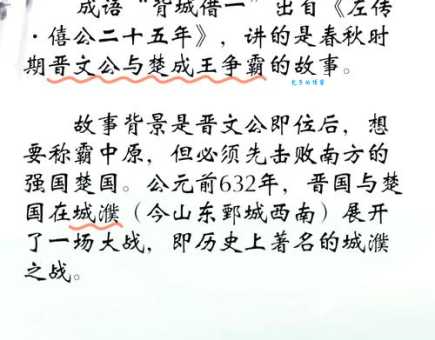 成语“背城借一”出自《左传
·僖公二十五年》，讲的是春秋时
期晋文公与楚成王争霸的故事。
故事背景是晋文公即位后，想
要称霸中原，但必须先击败南方的
强国楚国。公元前632年，晋国与楚
国在城濮（今山东鄄城西南）展开
了一场大战，即历史上著名的城濮
之战。